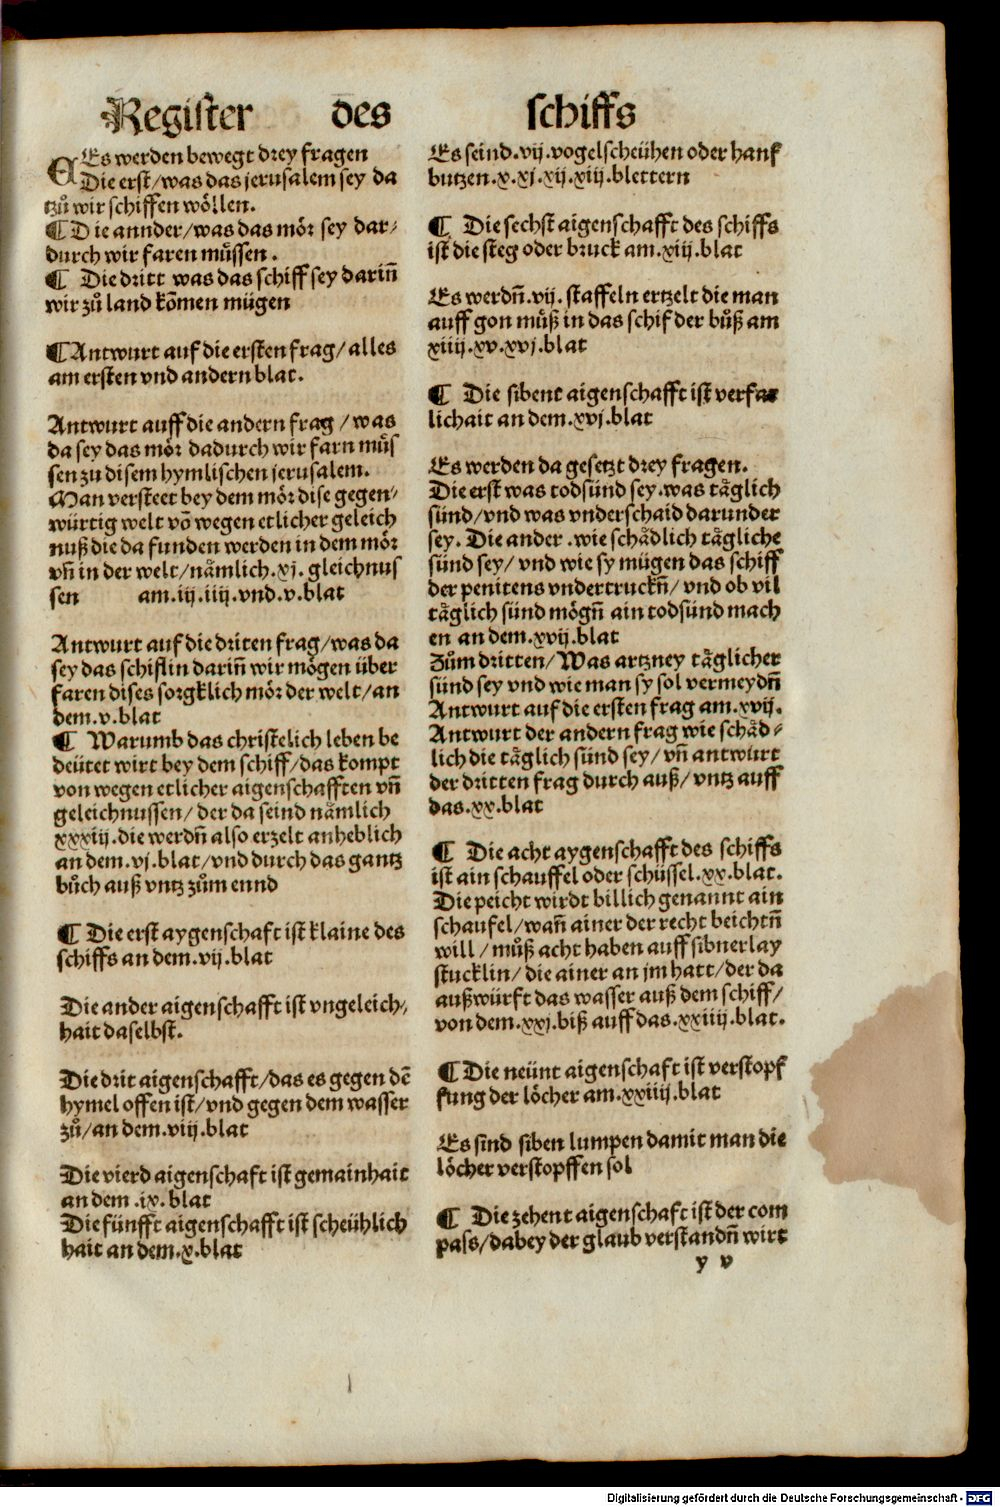 Register des schiffs
Es werden bewegt drey fragen
Die erst/was das jerusalem sey da
tzů wir schiffen wöllen.
¶ Die annder/was das mör sey dar-
durch wir faren müssen.
¶ Die dritt was das schiff sey dariñ
wir zů land kōmen mügen
¶ Antwurt auf die ersten frag/alles
am ersten vnd andern blat.
Antwurt auff die andern frag/was
da sey das mör dadurch wir farn müs
sen zu disem hymlischen jerusalem.
Man versteet bey dem mör dise gegen-
würtig welt vō wegen etlicher geleich
nuß die da funden werden in dem mör
vñ in der welt/nämlich.xj.gleichnus
sen am.iij.iiij.vnd.v.blat
Antwurt auf die driten frag/was da
sey das schiflin dariñ wir mögen über
faren dises sorgklich mör der welt/an
dem.v.blat
¶ Warumb das christelich leben be
deütet wirt bey dem schiff/das kompt
von wegen etlicher aigenschafften vñ
geleichnussen/der da seind nämlich
xxxiij.die werdñ also erzelt anheblich
an dem.vj.blat/vnd durch das gantz
bůch auß vntz zům ennd
¶ Die erst aygenschaft ist klaine des
schiffs an dem.vij.blat
Die ander aigenschafft ist vngeleich-
hait daselbst.
Die drit aigenschafft/das es gegen dē
hymel offen ist/vnd gegen dem wasser
zů/an dem.viij.blat
Die vierd aigenschaft ist gemainhait
an dem.ix.blat
Die fünfft aigenschafft ist scheühlich
hait an dem.x.blat
Es seind.vij.vogelscheühen oder hanf
butzen.x.xj.xij.xiij.blettern
¶ Die sechst aigenschafft des schiffs
ist die steg oder bruck am.xiij.blat
Es werdñ.vij.staffeln ertzelt die man
auff gon můß in das schif der bůß am
xiiij.xv.xvj.blat
¶ Die sibent aigenschafft ist verfar
lichait an dem.xvj.blat
Es werden da gesetzt drey fragen.
Die erst was todsünd sey.was täglich
sünd/vnd was vnderschaid darunder
sey. Die ander.wie schädlich tägliche
sünd sey/vnd wie sy mügen das schiff
der penitens vndertruckñ/vnd ob vil
täglich sünd mögñ ain todsünd mach
en an dem.xvij.blat
Zům dritten/Was artzney täglicher
sünd sey vnd wie man sy sol vermeydñ
Antwurt auf die ersten frag am.xvij.
Antwurt der andern frag wie schäd-
lich die täglich sünd sey/vñ antwurt
der dritten frag durch auß/vntz auff
das.xx.blat
¶ Die acht aygenschafft des schiffs
ist ain schauffel oder schüssel.xx.blat.
Die peicht wirdt billich genannt ain
schaufel/wañ ainer der recht beichtñ
will/můß acht haben auff sibnerlay
stucklin/die ainer an jm hatt/der da
außwürft das wasser auß dem schiff/
von dem.xxj.biß auff das.xxiiij.blat.
¶ Die neünt aigenschaft ist verstopf
fung der löcher am.xxiiij.blat
Es sind siben lumpen damit man die
löcher verstopffen sol
¶ Die zehent aigenschaft ist der com
pass/dabey der glaub verstandñ wirt
y v
Digitalisierung gefördert durch die Deutsche Forschungsgemeinschaft - DFG